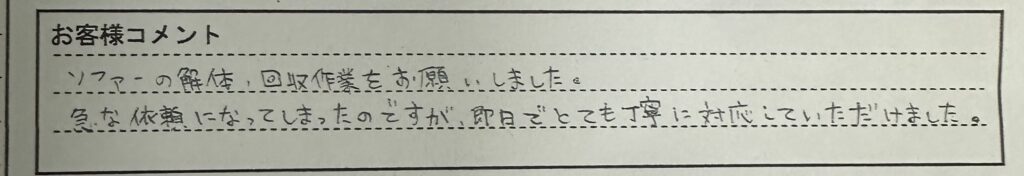 お客様コメント
ソファーの解体、回収作業をお願いしました。
急な依頼になってしまったのですが、即日でとても丁寧に対応していただけました。